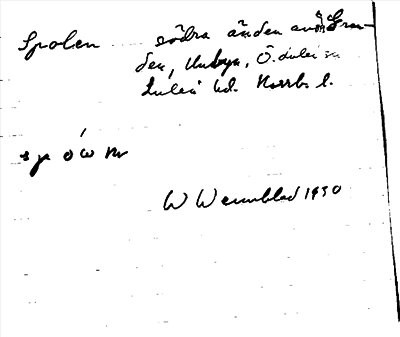 Spolen södra änden av Gran-
den, Unbyn, Ö. Luleå sn
Luleå hd. Norrb. l.
W Wennblad 1930